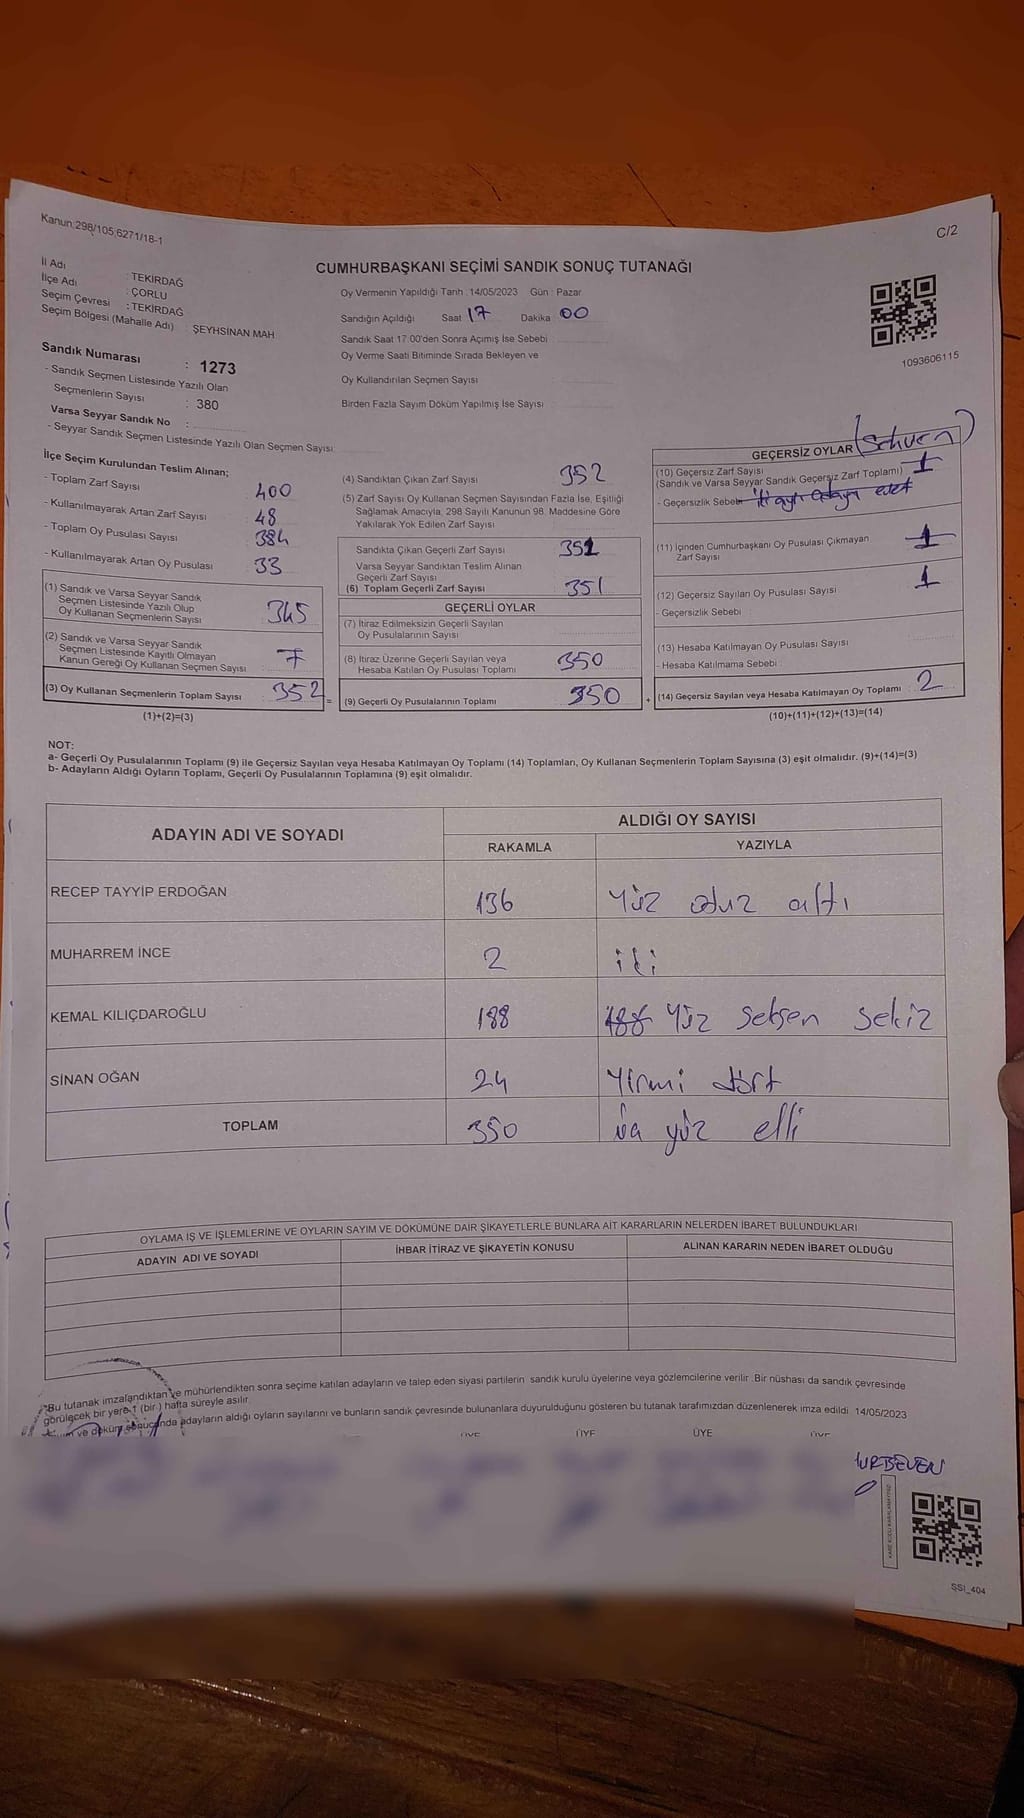 Kanun:298/105;6271/18-1
C/2
CUMHURBAŞKANI SEÇİMİ SANDIK SONUÇ TUTANAĞI
İl Adı : TEKİRDAĞ
İlçe Adı : ÇORLU
Seçim Çevresi : TEKİRDAĞ
Seçim Bölgesi (Mahalle Adı) : ŞEYHSİNAN MAH
Sandık Numarası : 1273
- Sandık Seçmen Listesinde Yazılı Olan
Seçmenlerin Sayısı : 380
Varsa Seyyar Sandık No :
- Seyyar Sandık Seçmen Listesinde Yazılı Olan Seçmen Sayısı:
Oy Vermenin Yapıldığı Tarih : 14/05/2023 Gün : Pazar
Sandığın Açıldığı Saat 17 Dakika 00
Sandık Saat 17:00'den Sonra Açımış İse Sebebi
Oy Verme Saati Bitiminde Sırada Bekleyen ve
Oy Kullandırılan Seçmen Sayısı
Birden Fazla Sayım Döküm Yapılmış İse Sayısı
1093606115
İlçe Seçim Kurulundan Teslim Alınan;
- Toplam Zarf Sayısı 400
- Kullanılmayarak Artan Zarf Sayısı 48
- Toplam Oy Pusulası Sayısı 384
- Kullanılmayarak Artan Oy Pusulası 33
(1) Sandık ve Varsa Seyyar Sandık
Seçmen Listesinde Yazılı Olup
Oy Kullanan Seçmenlerin Sayısı 345
(2) Sandık ve Varsa Seyyar Sandık
Seçmen Listesinde Kayıtlı Olmayan
Kanun Gereği Oy Kullanan Seçmen Sayısı 7
(3) Oy Kullanan Seçmenlerin Toplam Sayısı 352
(1)+(2)=(3)
(4) Sandıktan Çıkan Zarf Sayısı 352
(5) Zarf Sayısı Oy Kullanan Seçmen Sayısından Fazla İse, Eşitliği
Sağlamak Amacıyla, 298 Sayılı Kanunun 98. Maddesine Göre
Yakılarak Yok Edilen Zarf Sayısı
Sandıkta Çıkan Geçerli Zarf Sayısı 351
Varsa Seyyar Sandıktan Teslim Alınan
Geçerli Zarf Sayısı
(6) Toplam Geçerli Zarf Sayısı 351
GEÇERLİ OYLAR
(7) İtiraz Edilmeksizin Geçerli Sayılan
Oy Pusulalarının Sayısı
(8) İtiraz Üzerine Geçerli Sayılan veya
Hesaba Katılan Oy Pusulası Toplamı 350
= (9) Geçerli Oy Pusulalarının Toplamı 350
GEÇERSİZ OYLAR (Sehven)
(10) Geçersiz Zarf Sayısı
(Sandık ve Varsa Seyyar Sandık Geçersiz Zarf Toplamı) 1
- Geçersizlik Sebebi iki ayrı adaya evet
(11) İçinden Cumhurbaşkanı Oy Pusulası Çıkmayan
Zarf Sayısı 1
(12) Geçersiz Sayılan Oy Pusulası Sayısı 1
- Geçersizlik Sebebi :
(13) Hesaba Katılmayan Oy Pusulası Sayısı
- Hesaba Katılmama Sebebi :
+ (14) Geçersiz Sayılan veya Hesaba Katılmayan Oy Toplamı 2
(10)+(11)+(12)+(13)=(14)
NOT:
a- Geçerli Oy Pusulalarının Toplamı (9) ile Geçersiz Sayılan veya Hesaba Katılmayan Oy Toplamı (14) Toplamları, Oy Kullanan Seçmenlerin Toplam Sayısına (3) eşit olmalıdır. (9)+(14)=(3)
b- Adayların Aldığı Oyların Toplamı, Geçerli Oy Pusulalarının Toplamına (9) eşit olmalıdır.
ADAYIN ADI VE SOYADI ALDIĞI OY SAYISI
RAKAMLA YAZIYLA
RECEP TAYYİP ERDOĞAN 136 Yüz otuz altı
MUHARREM İNCE 2 iki
KEMAL KILIÇDAROĞLU 188 188 Yüz seksen sekiz
SİNAN OĞAN 24 Yirmi dört
TOPLAM 350 üç yüz elli
OYLAMA İŞ VE İŞLEMLERİNE VE OYLARIN SAYIM VE DÖKÜMÜNE DAİR ŞİKAYETLERLE BUNLARA AİT KARARLARIN NELERDEN İBARET BULUNDUKLARI
ADAYIN ADI VE SOYADI İHBAR İTİRAZ VE ŞİKAYETİN KONUSU ALINAN KARARIN NEDEN İBARET OLDUĞU
"Bu tutanak imzalandıktan ve mühürlendikten sonra seçime katılan adayların ve talep eden siyasi partilerin sandık kurulu üyelerine veya gözlemcilerine verilir. Bir nüshası da sandık çevresinde
görülecek bir yere 1 (bir) hafta süreyle asılır.
ve döküm sonucunda adayların aldığı oyların sayılarını ve bunların sandık çevresinde bulunanlara duyurulduğunu gösteren bu tutanak tarafımızdan düzenlenerek imza edildi. 14/05/2023
ÜYE ÜYE ÜYE ÜYE
KARE KODU KARALAMAYINIZ
SSI_404